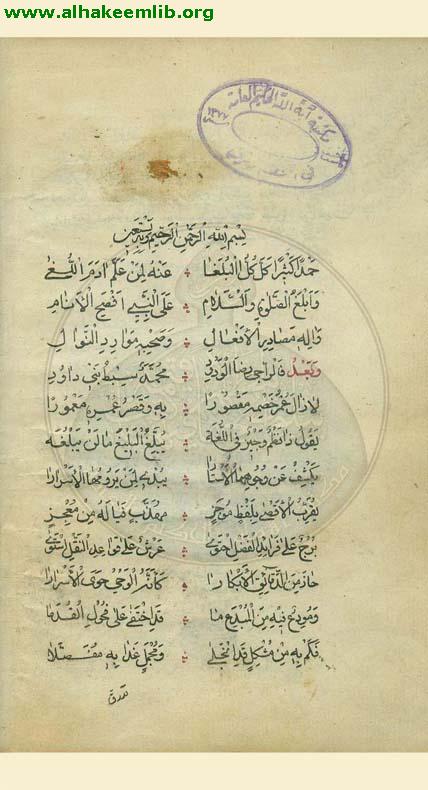 www.alhakeemlib.org
مكتبة آية الله الحكيم العامة
١٣٧٧
بسم الله الرحمن الرحيم وبه نستعين
حمدًا كثيرًا كل كل البلغا عنه لمن علم آدم اللغى
وابلغ الصلوة والسلام على النبي افصح الأنام
واله مصادر الأفعال وصحبه موارد النوال
وبعد فالراجي رضا الودود محمد سبط بني داود
لا زال عمر خصمه مقصورا به وقصر عمره معمورا
يقول ذا نظم وجيز في اللغة يبلغ البليغ ما لن يبلغه
يكشف عن وجوهها الأستارا يبدي لمن يرومها الأسرارا
يقرب الأقصى بلفظ موجز مهذب فيا له من معجز
برج على فرايد الفضل احتوى عرش على قواعد النقل استوى
حاز من الدقايق الأبكارا كأنه الوحي حوى الأسرارا
ومودع فيه من المبدع ما قد اختفى على فحول القدما
فكم به من مشكل قد انجلى ومجمل غدا به مفصلا